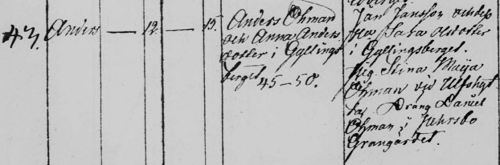 43. Anders — 12. — 15.
Anders Öhman
och Anna Anders
dotter i Gyllings
berget.
45–50.
Jan Jansson och des
hu Sara Olsdotter
i Gyllingsberget.
Pig. Stina Maija
Öhman vid
Dräng Daniel
Öhman i Juhrsbo
Grangärdet.